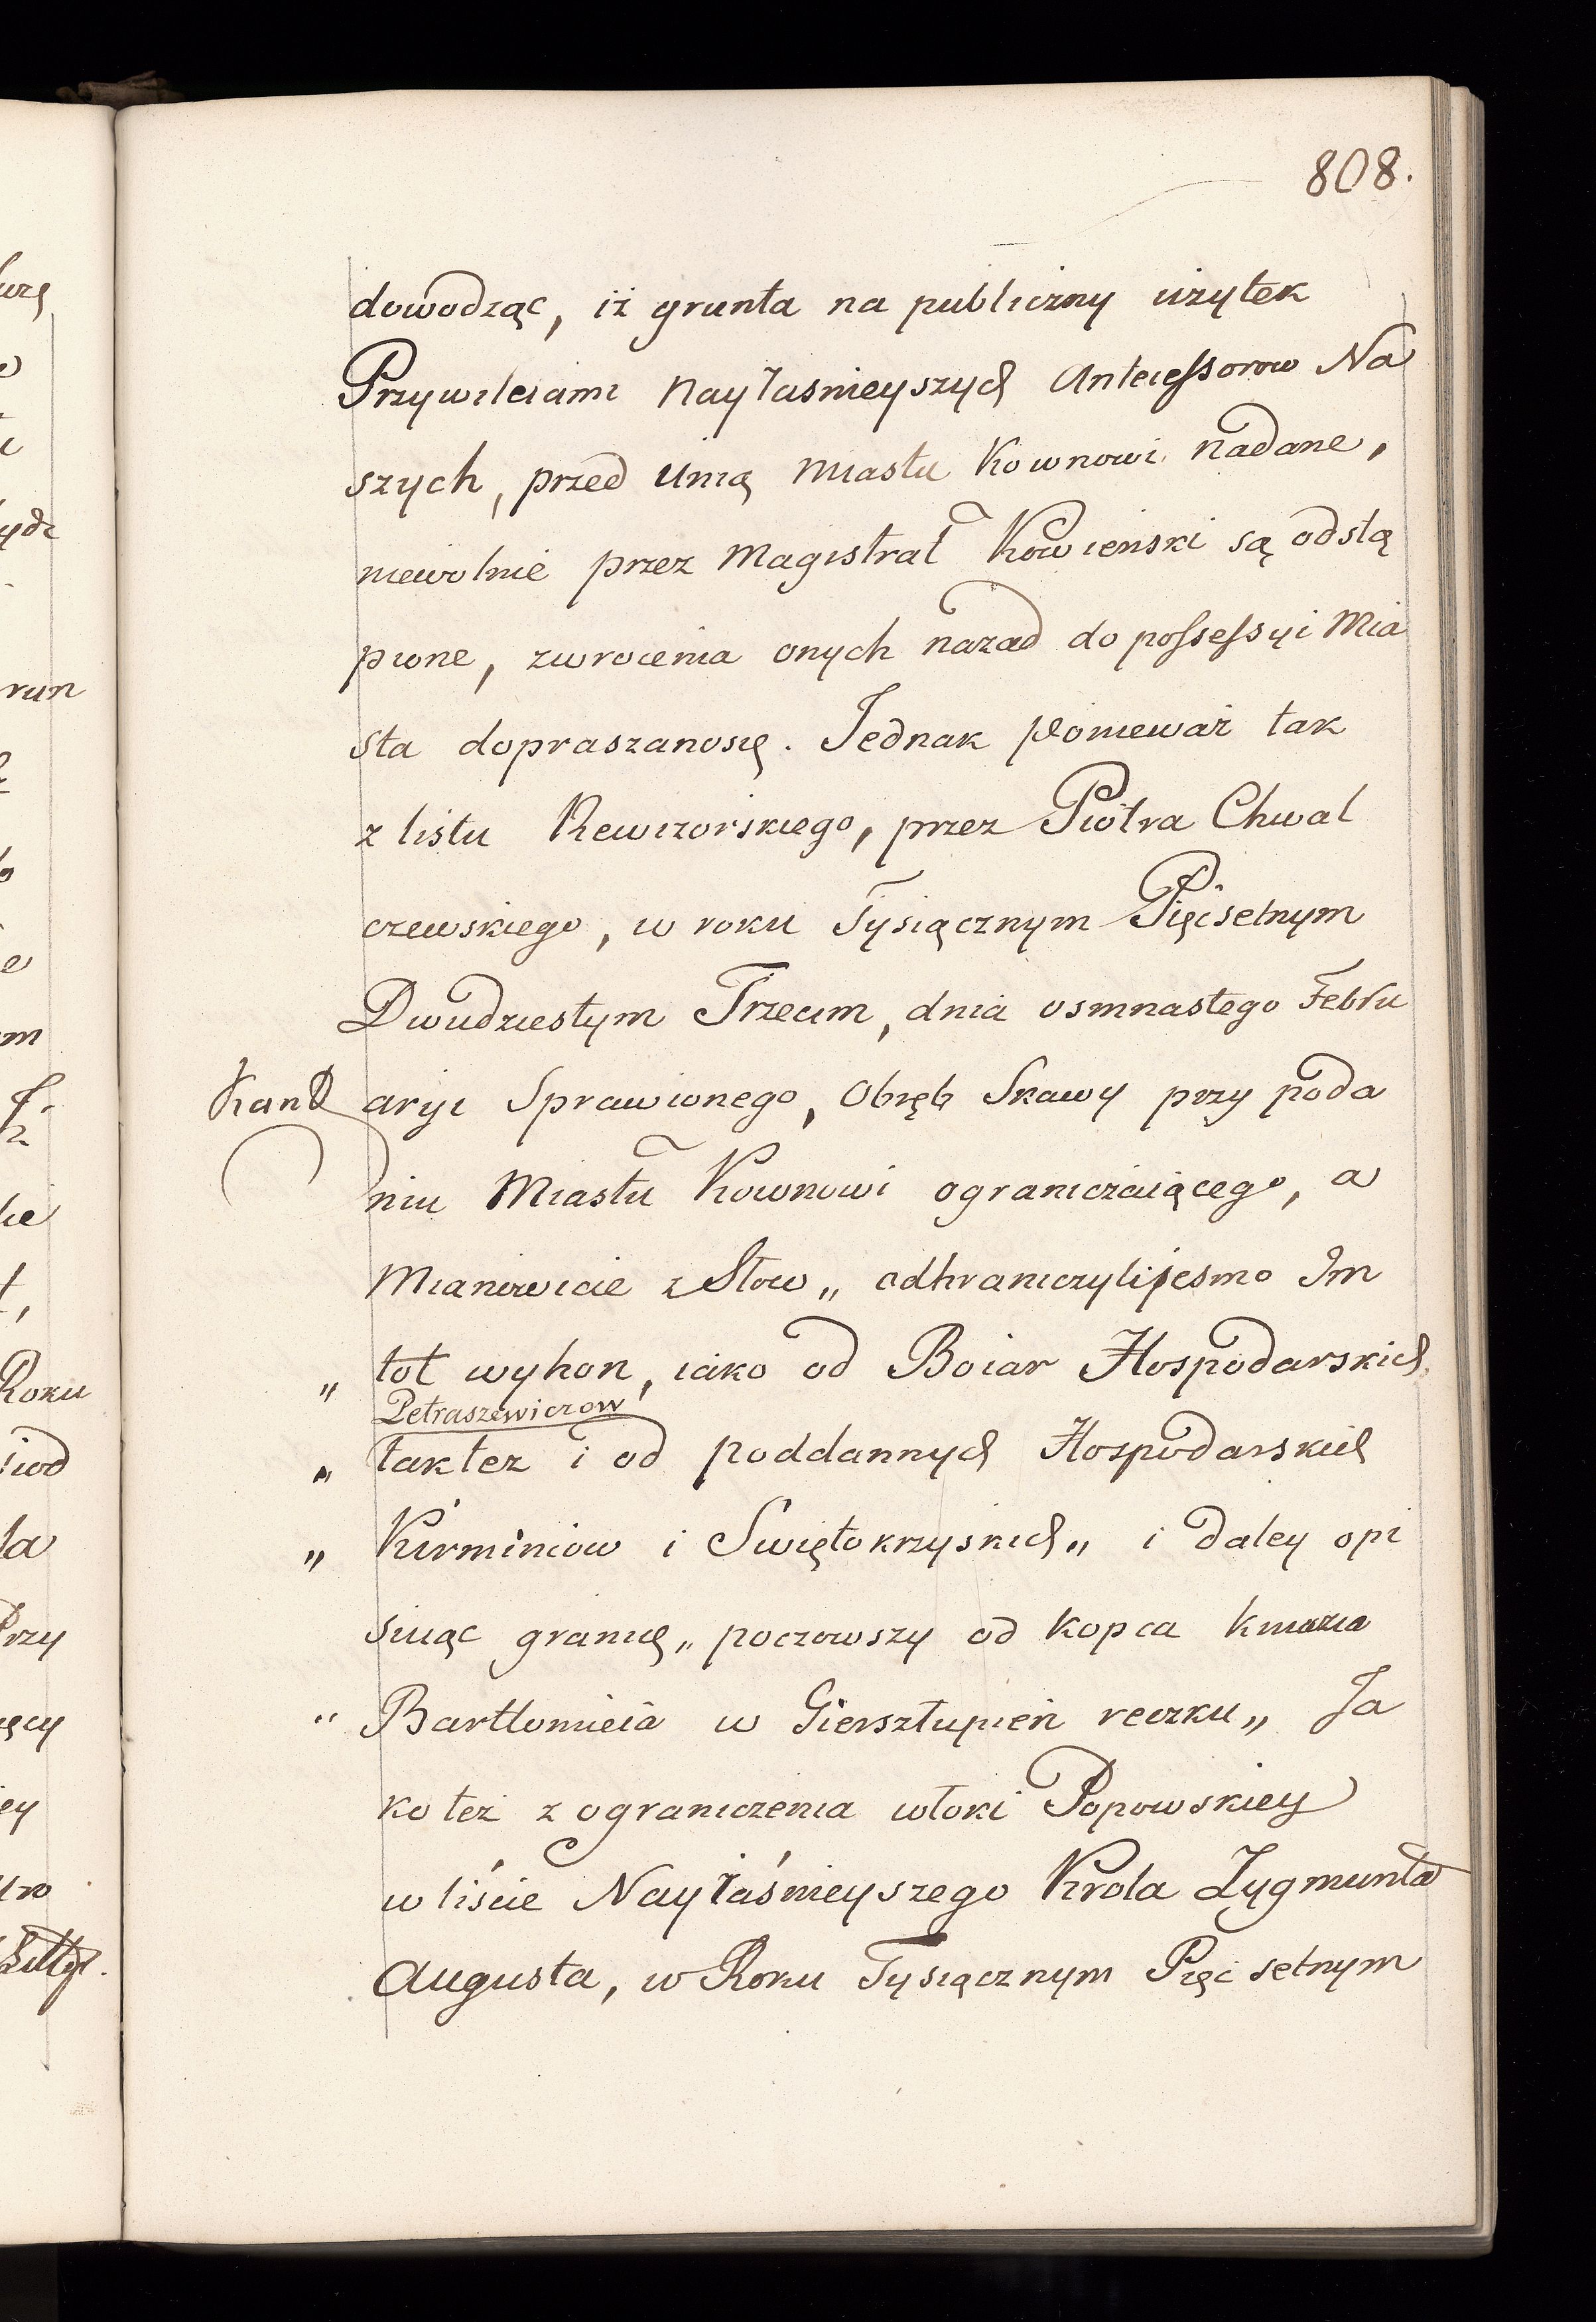 808.
dowodząc, iż grunta na publiczny użytek
Przywileiami Nayiasnieyszych Antecessorow Na
szych, przed Unią Miastu Kownowi nadane,
niewolnie przez Magistrat Kowieński są odstą
pione, zwrocenia onych nazad do possessyi Mia
sta dopraszanosię. Jednak ponieważ tak
z listu Rewizorskiego, przez Piotra Chwal
czewskiego, w roku Tysiącznym Pięcsetnym
Dwudziestym Trzecim, dnia osmnastego Febru
aryi Sprawionego, Obręb Skawy przy poda
niu Miastu Kownowi ograniczaiącego, a
Mianowicie z Słow „ odhraniczylijesmo Im
„ tot wyhon, iako od Boiar Hospodarskich
Petraszewiczow
„ taktez i od poddannych Hospodarskich
„ Kirminiow i Swiętokrzyskich „ i daley opi
suiąc granicę „ poczowszy od Kopca kniazia
„ Bartłomieia w Giersztupień reczku „ Ja
ko też z ograniczenia włoki Popowskiey
w liście Nayiaśnieyszego Krola Zygmunta
Augusta, w Roku Tysiącznym Pięć setnym